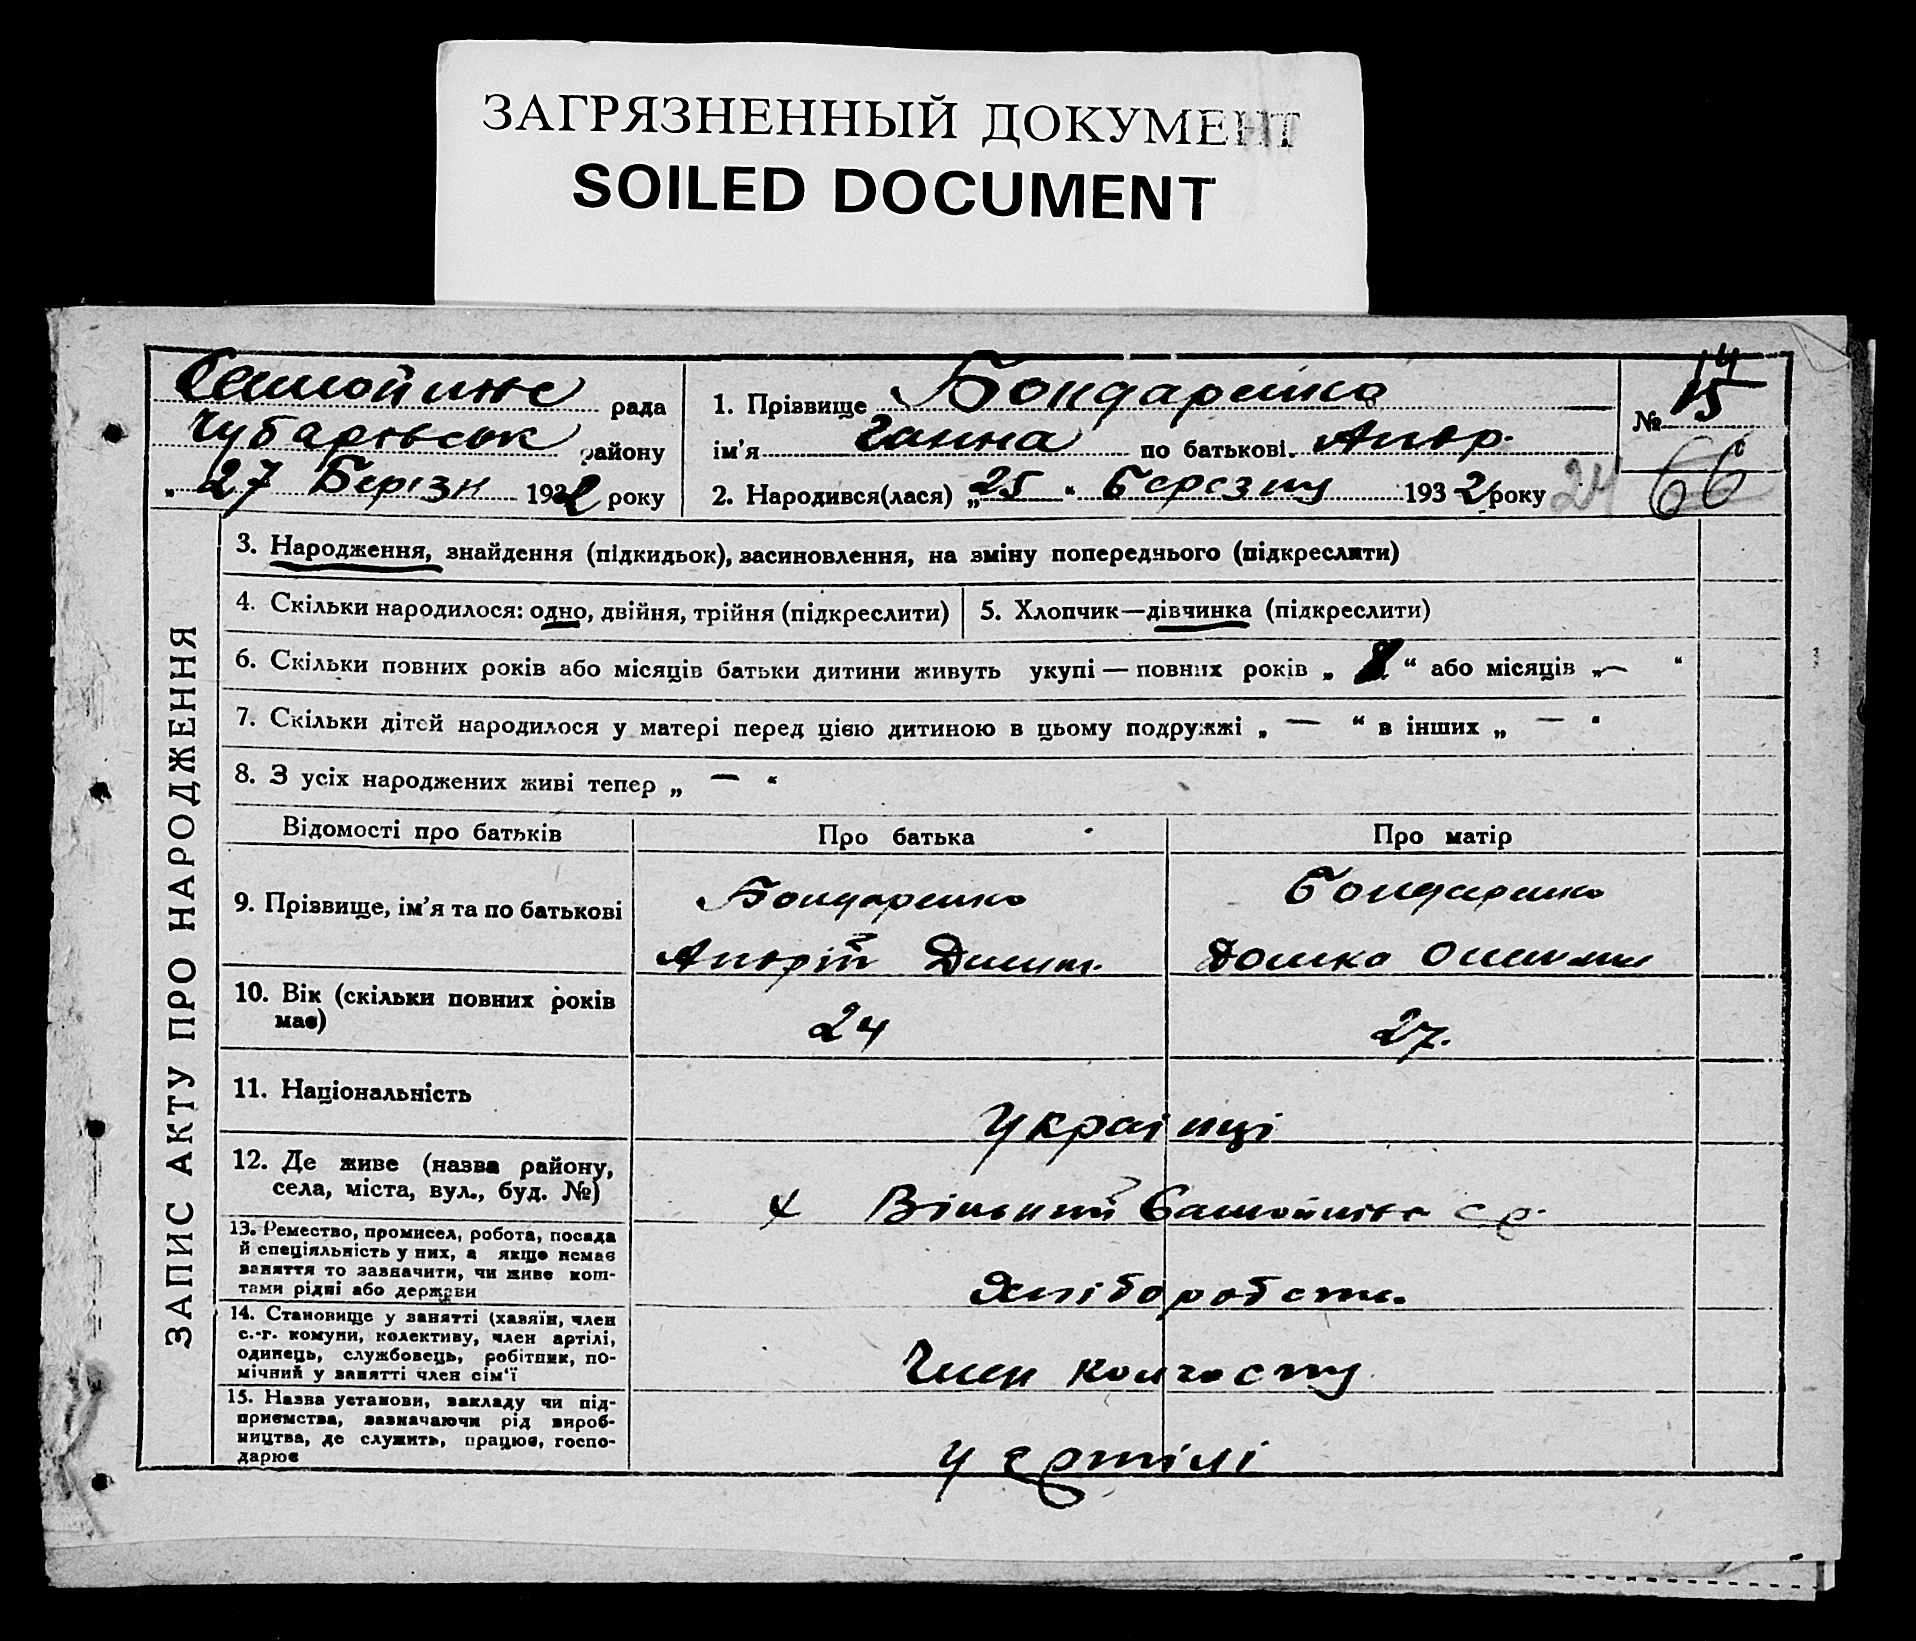 ЗАГРЯЗНЕННЫЙ ДОКУМЕНТ
SOILED DOCUMENT
рада
Чубарівськ району
„ 27 Березн 1932 року
1. Прізвище Бондаренко
ім'я Ганна по батькові Андр.
2. Народився(лася) „25“ березня 1932 року 24
№ 15
14
66
ЗАПИС АКТУ ПРО НАРОДЖЕННЯ
3. Народження, знайдення (підкидьок), засиновлення, на зміну попереднього (підкреслити)
4. Скільки народилося: одно, двійня, трійня (підкреслити)
5. Хлопчик—дівчинка (підкреслити)
6. Скільки повних років або місяців батьки дитини живуть укупі — повних років „ “ або місяців „— “
7. Скільки дітей народилося у матері перед цією дитиною в цьому подружжі „ — “ в інших „ — “
8. З усіх народжених живі тепер „ — “
Відомості про батьків
Про батька
Про матір
9. Прізвище, ім'я та по батькові
Бондаренко
Андрій
Бондаренко
10. Вік (скільки повних років
має)
24
27.
11. Національність
Українці
12. Де живе (назва району,
села, міста, вул., буд. №)
х Вільний с р.
13. Ремество, промисел, робота, посада
й спеціяльність у них, а якщо немає
заняття то зазначити, чи живе кош-
тами рідні або держави
Хліборобств.
14. Становище у занятті (хазяїн, член
с.-г. комуни, колективу, член артілі,
одинець, службовець, робітник, по-
мічний у занятті член сім'ї
Член колгоспу
15. Назва установи, закладу чи під-
приємства, зазначаючи рід вироб-
ництва, де служить, працює, госпо-
дарює
у артілі